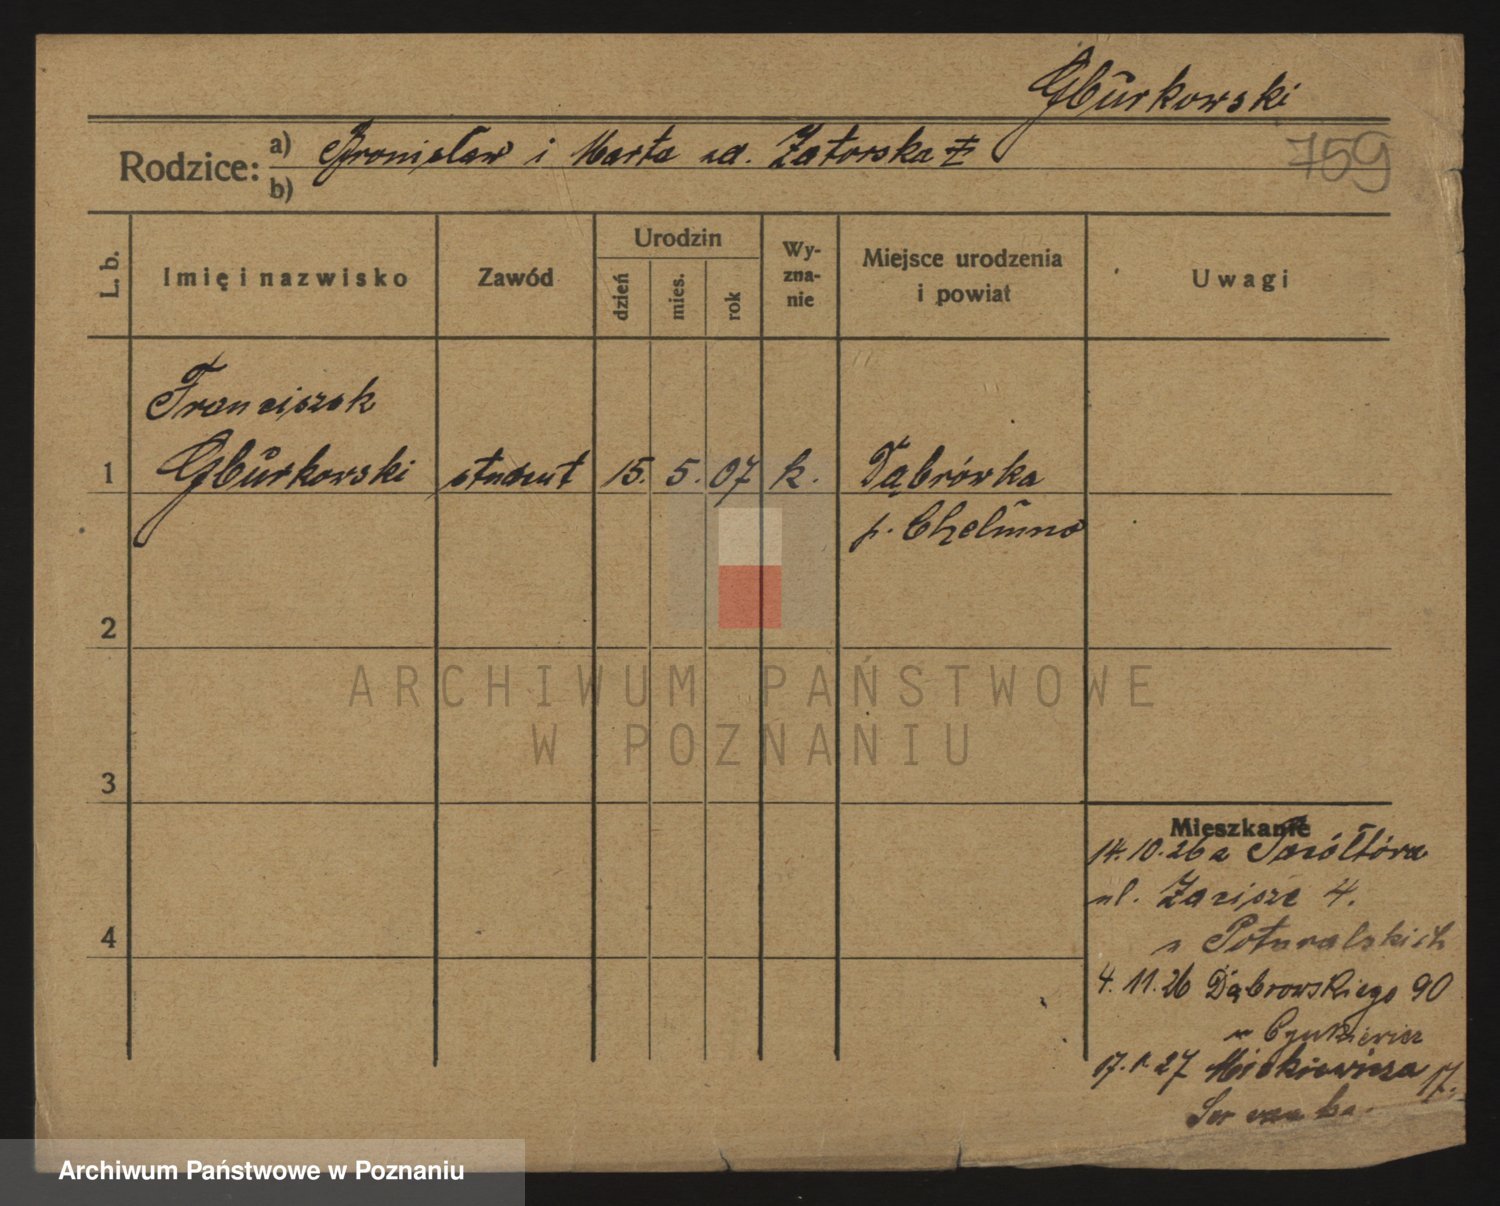 Gburkowski
759
Rodzice: a) Bronisław i Marta zd. Zatorska
b)
L. b.
Imię i nazwisko
Zawód
Urodzin
dzień
mies.
rok
Wy-
zna-
nie
Miejsce urodzenia
i powiat
Uwagi
Franciszek
1 Gburkowski student 15. 5. 07 k. Dąbrówka
p. Chełmno
2
3
4
Mieszkanie
14.10.26 z
ul. Zacisze 4.
u Poturalskich
4.11.26 Dąbrowskiego 90
u
17.1.27 Mickiewicza 17.
ARCHIWUM PAŃSTWOWE
W POZNANIU
Archiwum Państwowe w Poznaniu